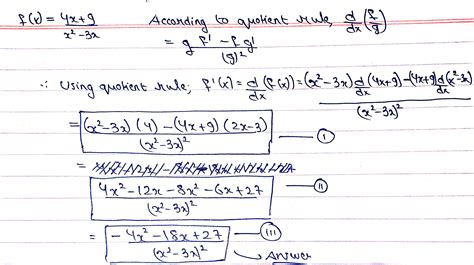 f(x) = 4x+9 / x²-3x According to quotient rule, d/dx (f/g)
= g f' - f g' / (g)²
∴ Using quotient rule, f'(x) = d/dx (f(x)) = (x²-3x) d/dx (4x+9) - (4x+9) d/dx (x²-3x) / (x²-3x)²
= (x²-3x) (4) - (4x+9) (2x-3) / (x²-3x)² — I
=
4x² - 12x - 8x² - 6x + 27 / (x²-3x)² — II
= -4x² - 18x + 27 / (x²-3x)² — III
Answer